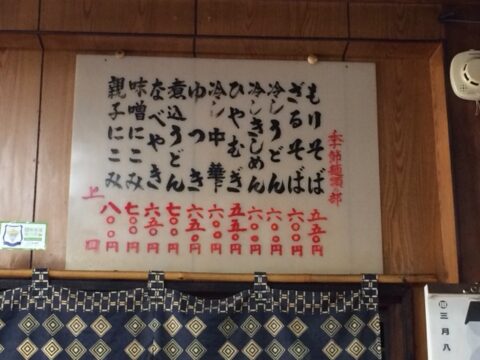 季節麺類部
もりそば 五五〇円
ざるそば 六〇〇円
冷しうどん 六〇〇円
冷しきしめん 六〇〇円
ひやむぎ 五五〇円
冷し中華 六〇〇円
ゆつき 六五〇円
煮込うどん 七〇〇円
なべやき 六五〇円
味噌にこみ 七〇〇円
親子にこみ 八〇〇円
上
口
三月八